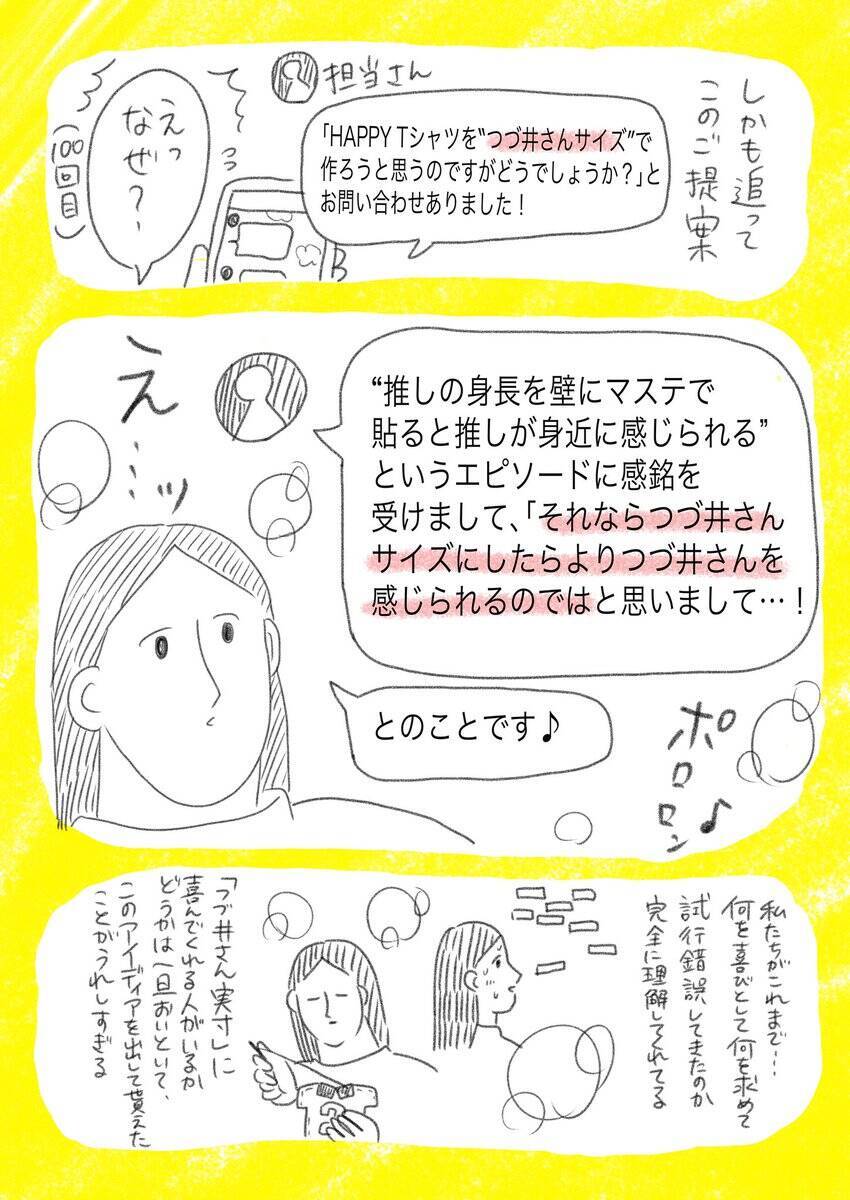 しかも追って
このご提案
担当さん
「HAPPY Tシャツを“つづ井さんサイズ”で
作ろうと思うのですがどうでしょうか？」と
お問い合わせありました！
えっ
なぜ？
（100回目）
“推しの身長を壁にマステで
貼ると推しが身近に感じられる”
というエピソードに感銘を
受けまして、「それならつづ井さん
サイズにしたらよりつづ井さんを
感じられるのではと思いまして…！
え…ッ
とのことです♪
ポロロン♪
私たちがこれまで…
何を喜びとして何を求めて
試行錯誤してきたのか
完全に理解してくれてる
「つづ井さん実寸」に
喜んでくれる人がいるか
どうかは一旦おいといて、
このアイディアを出して貰えた
ことがうれしすぎる